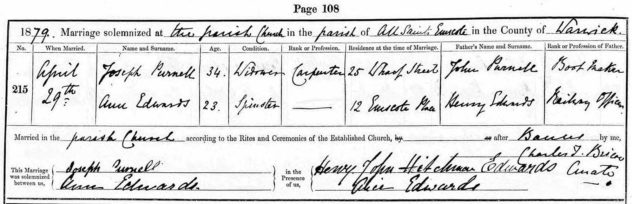 Page 108
1879. Marriage solemnized at the parish Church in the parish of All Saints Emscote in the County of Warwick.
No. When Married. Name and Surname. Age. Condition. Rank or Profession. Residence at the time of Marriage. Father's Name and Surname. Rank or Profession of Father.
215 April 29th Joseph Purnell 34. Widower Carpenter 25 Wharf Street John Purnell Boot Maker
Ann Edwards 23. Spinster — 12 Emscote Place Henry Edwards Railway Officer
Married in the parish Church according to the Rites and Ceremonies of the Established Church, by or after Banns by me,
Charles F. Curate
This Marriage was solemnized between us, Joseph Purnell Ann Edwards. in the Presence of us, Henry John Hitchman Edwards Alice Edwards